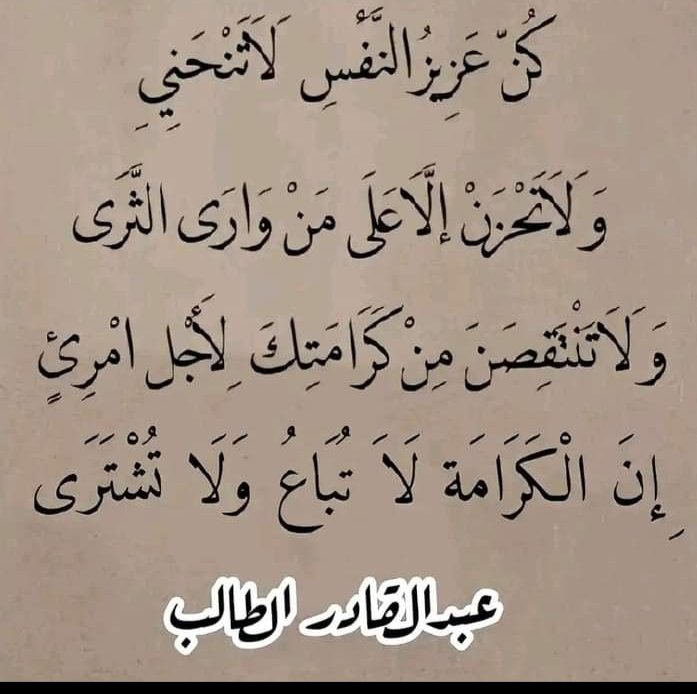 كُنّ عَزِيزُ النَّفْسِ لَاَتَنْحَنِيِ
وَلَاَتَحْزَنْ إلَّاعَلَى مَنْ وَارَى الثَّرَى
وَلَاتَنْتَقِصَنَ مِنْ كَرَامَتِكَ لِأَجْل امْرِئٍ
إِنَ الْكَرَامَة لَا تُبَاعُ وَلَا تُشْتَرَى
عبدالقادر الطالب